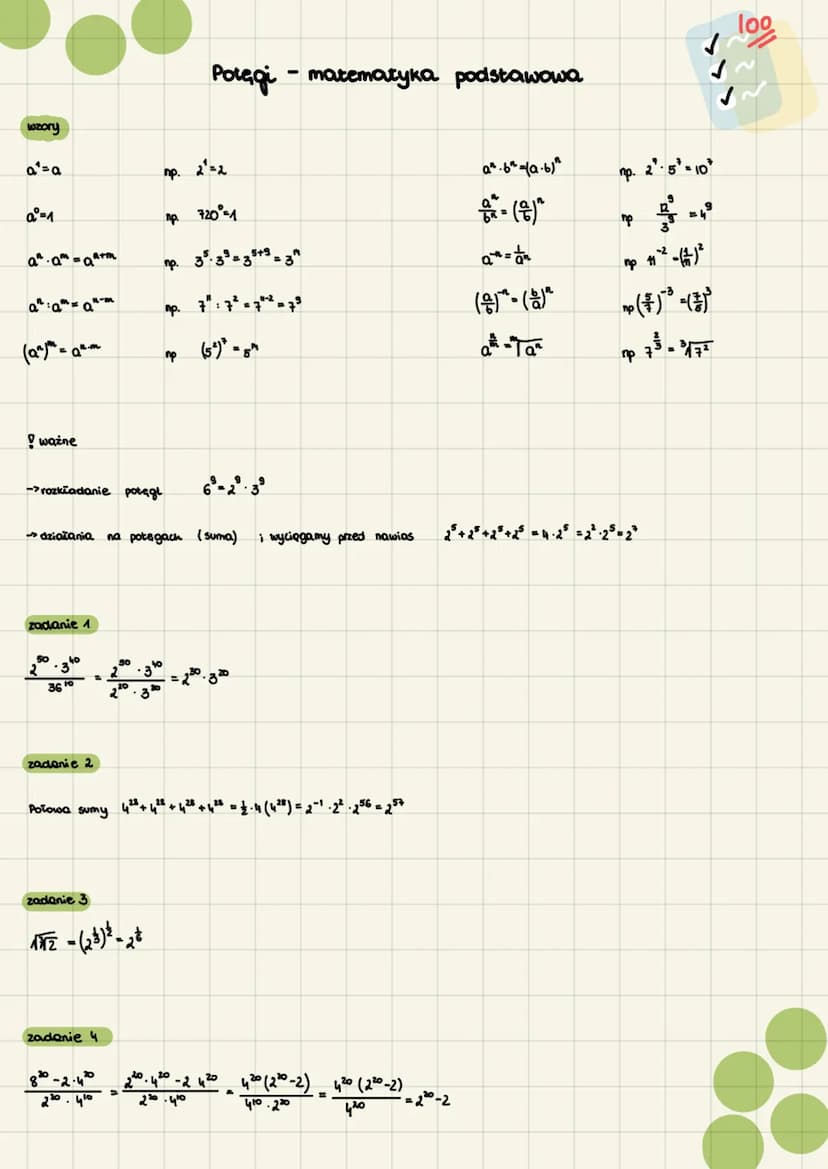 100
Potęgi - matematyka podstawowa
wzory
a¹=a np. 2¹=2
a⁰=1 np. 720⁰=1
aⁿ·aᵐ=aⁿ⁺ᵐ np. 3⁵·3⁹=3⁵⁺⁹=3¹⁴
aⁿ:aᵐ=aⁿ⁻ᵐ np. 7¹¹:7²=7¹¹⁻²=7⁹
(aⁿ)ᵐ=aⁿ·ᵐ np (5²)⁷=5¹⁴
aⁿ·bⁿ=(a·b)ⁿ np. 2⁷·5⁷=10⁷
aⁿ/bⁿ=(a/b)ⁿ np 12⁹/3⁹=4⁹
a⁻ⁿ=1/aⁿ np 11⁻²=(1/11)²
(a/b)⁻ⁿ=(b/a)ⁿ np (5/7)⁻³=(7/5)³
a^(n/m)=ᵐ√aⁿ np 7^(2/3)=³√7²
! ważne
-> rozkładanie potęgi 6⁹=2⁹·3⁹
-> działania na potęgach (suma) ; wyciągamy przed nawias 2⁵+2⁵+2⁵+2⁵=4·2⁵=2²·2⁵=2⁷
zadanie 1
2⁵⁰·3⁴⁰/36¹⁰ = 2⁵⁰·3⁴⁰/2²⁰·3²⁰ = 2³⁰·3²⁰
zadanie 2
Połowa sumy 4²⁸+4²⁸+4²⁸+4²⁸=½·4(4²⁸)=2⁻¹·2²·2⁵⁶=2⁵⁷
zadanie 3
√³√2=(2^(1/3))^(1/2)=2^(1/6)
zadanie 4
8²⁰-2·4²⁰/2²⁰·4¹⁰ = 2²⁰·4²⁰-2·4²⁰/2²⁰·4¹⁰ = 4²⁰(2²⁰-2)/4¹⁰·2²⁰ = 4²⁰(2²⁰-2)/4²⁰ = 2²⁰-2